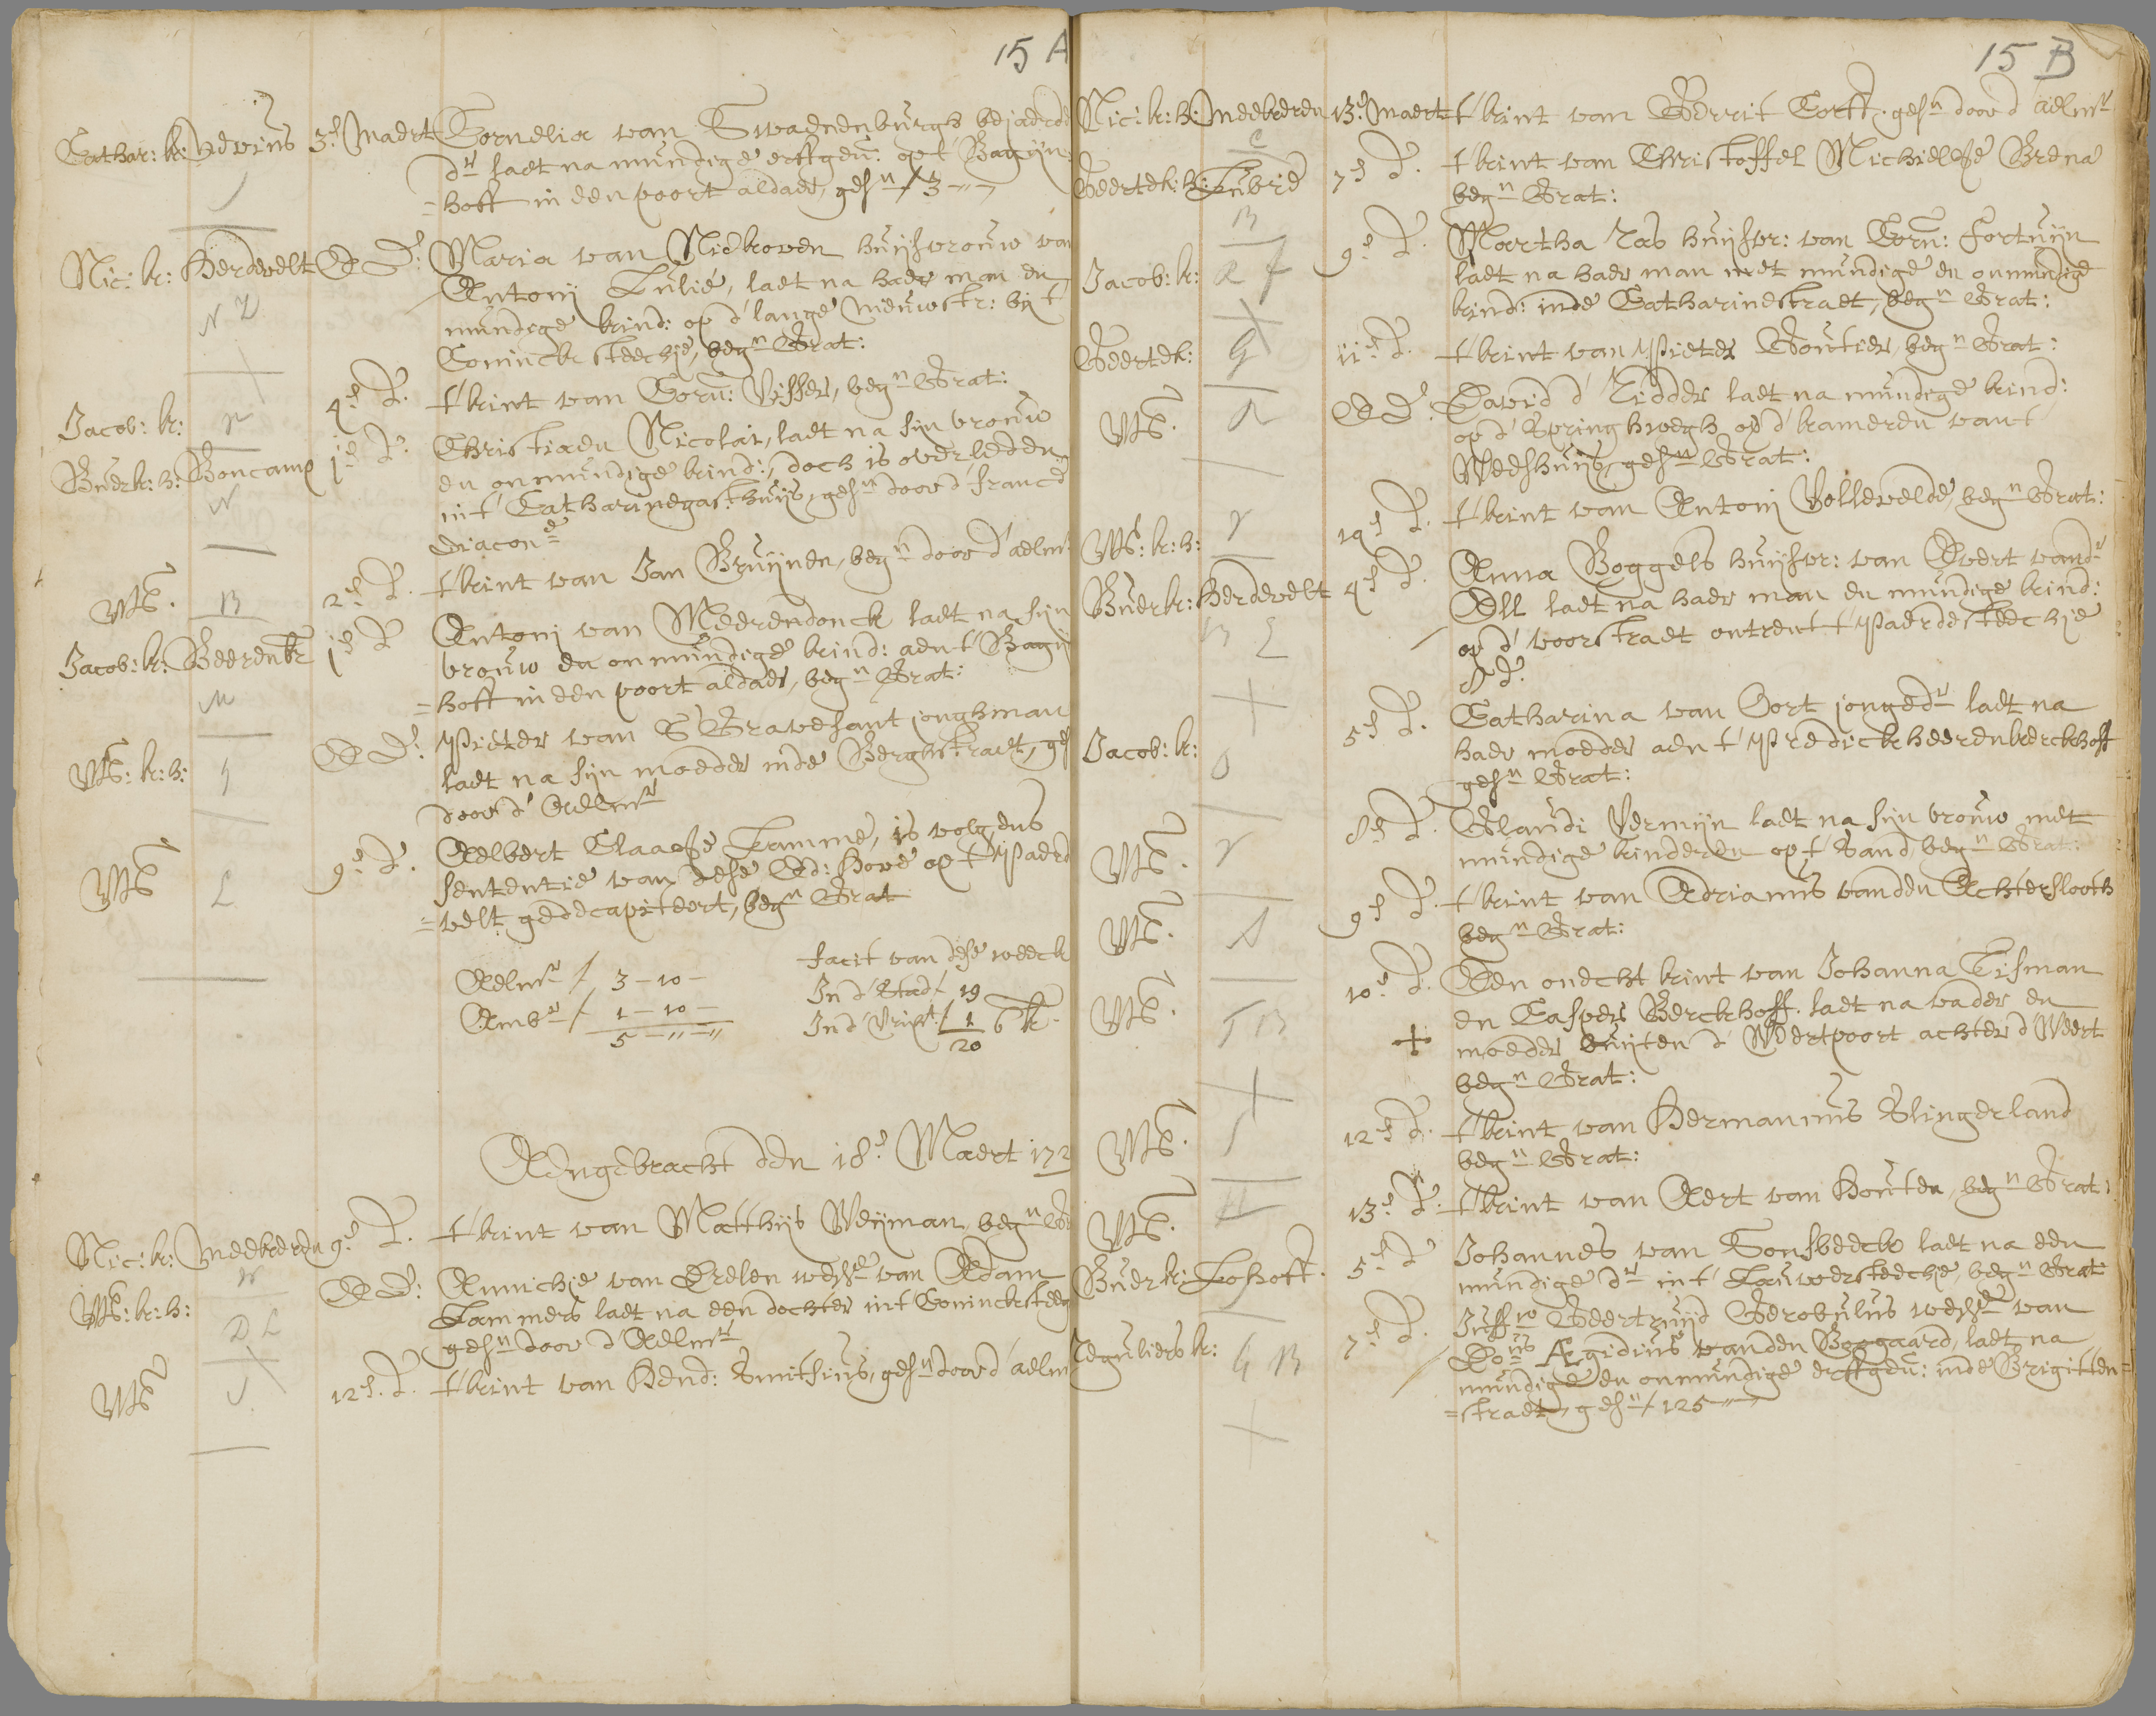 15 A
Cathar: k: Nevius 3e Maert Cornelia van Swaenenburgh bejaerde
dr laet na mundige erffgen: opt Bagijn
=hoff in een poort aldaer, gesn f 3-"-"
Nic: k: Herdevelt Ed: Maria van Niekoven huijsvrouw van
Antonij Lulié, laet na haer man en
N L
mundige kind: op d' lange Nieuwstr: bij t'
Coninckx steechie, begn Grat:
Jacob: k: 4e d: t' kint van Corn: Visser, begn Grat:
Buerk: h: Boncamp 1e d: Christiaen Nicolai, laet na sijn vrouw
en onmundige kind:, doch is overleden
N
int' Catharinegasthuijs, gesn door d' france
diaconie
B 2e d: t' kint van Jan Bruijnen, begn door d' aelmr
Jacob: k: Beerenbr 1e d: Antonij van Meerendonck laet na sijn
vrouw en onmundige kind: aen t' Bagijn
M
=hoff in een poort aldaer, begn Grat:
k: h: Ed: Pieter van S' Gravesant jonghman
laet na sijn moeder inde Berghstraet, ges
door d' Aelmr
L 9e d: Aelbert Claasse Lamme, is volgens
sententie van dese Ed: Hove op t' Paerd
=velt gedecapiteert, begn Grat
facit van dese weeck
Aelmr f 3-10- In d' Stad f 19
Ambr f 1-10- In d' Vrijst: f 1 6 k
5-"-" 20
Aengebracht den 18e Maert 172
Nic: k: Meekeren 9e d: t' kint van Matthijs Weijman, begn Gr
N
k: h: Ed: Annichie van Erelen weds van Adam
D L
Lammers laet na een dochter int Coninckxsteeg
gesn door d' Aelmr
12e d: t' kint van Hend: Smithius, gesn door d' aelm
15 B
Nic: k: h: Meekeren 13e Maert t' kint van Gerrit Corff. gesn door d' aelmr
C
Geertek: h: Lubrie 7e d: t' kint van Christoffel Michielsse Brena
begn Grat:
B
Jacob: k: 9e d: Martha Ras huijsvr: van Corn: Fortuijn
R f
laet na haer man met mundige en onmundige
kind: inde Catharinestraet, begn Grat:
Geertek: G 11e d: t' kint van Pieter Goutier, begn Grat:
R Ed: David d' Ridder laet na mundige kind:
op d' Springhwegh op d' kameren vant
Weeshuijs, gesn Grat:
k: h: V 19e d: t' kint van Antonij Vollevelde, begn Grat:
Buerk: Herdevelt 4e d: Anna Boggels huijsvr: van Evert vandr
Ell laet na haer man en mundige kind:
B E
op d' voorstraet ontrent t' Paerdesteechie
Jacob: k: 5e d: Catharina van Oort jongedr laet na
haer moeder aen t' Predickheerenkerckhoff
O
gesn Grat:
V 8e d: Glaudi Vermijn laet na sijn vrouw met
mundige kinderen op t' Sand, begn Grat:
A 9e d: t' kint van Adrianus vanden Achterslooth
begn Grat:
10e d: Een onecht kint van Johanna Eisman
T B
en Casper Berckhoff. laet na vader en
moeder buijten d' Weertpoort achter d' Weert
begn Grat:
S 12e d: t' kint van Hermannus Slingerland
begn Grat:
H 13e d: t' kint van Aert van Houten, begn Grat:
Buerk: Lohoff. 5e d: Johannes van Gonsbeeck laet na een
mundige dr int' Lauwersteechie, begn Grat
Reguliersk: 7e d: Juffw Geertruijd Gerobulus weds van
G B
Dous Ægidius vanden Boogaard, laet na
mundige en onmundige erffgen: inde Brigitten=
=straet, gesn f 125-"-"